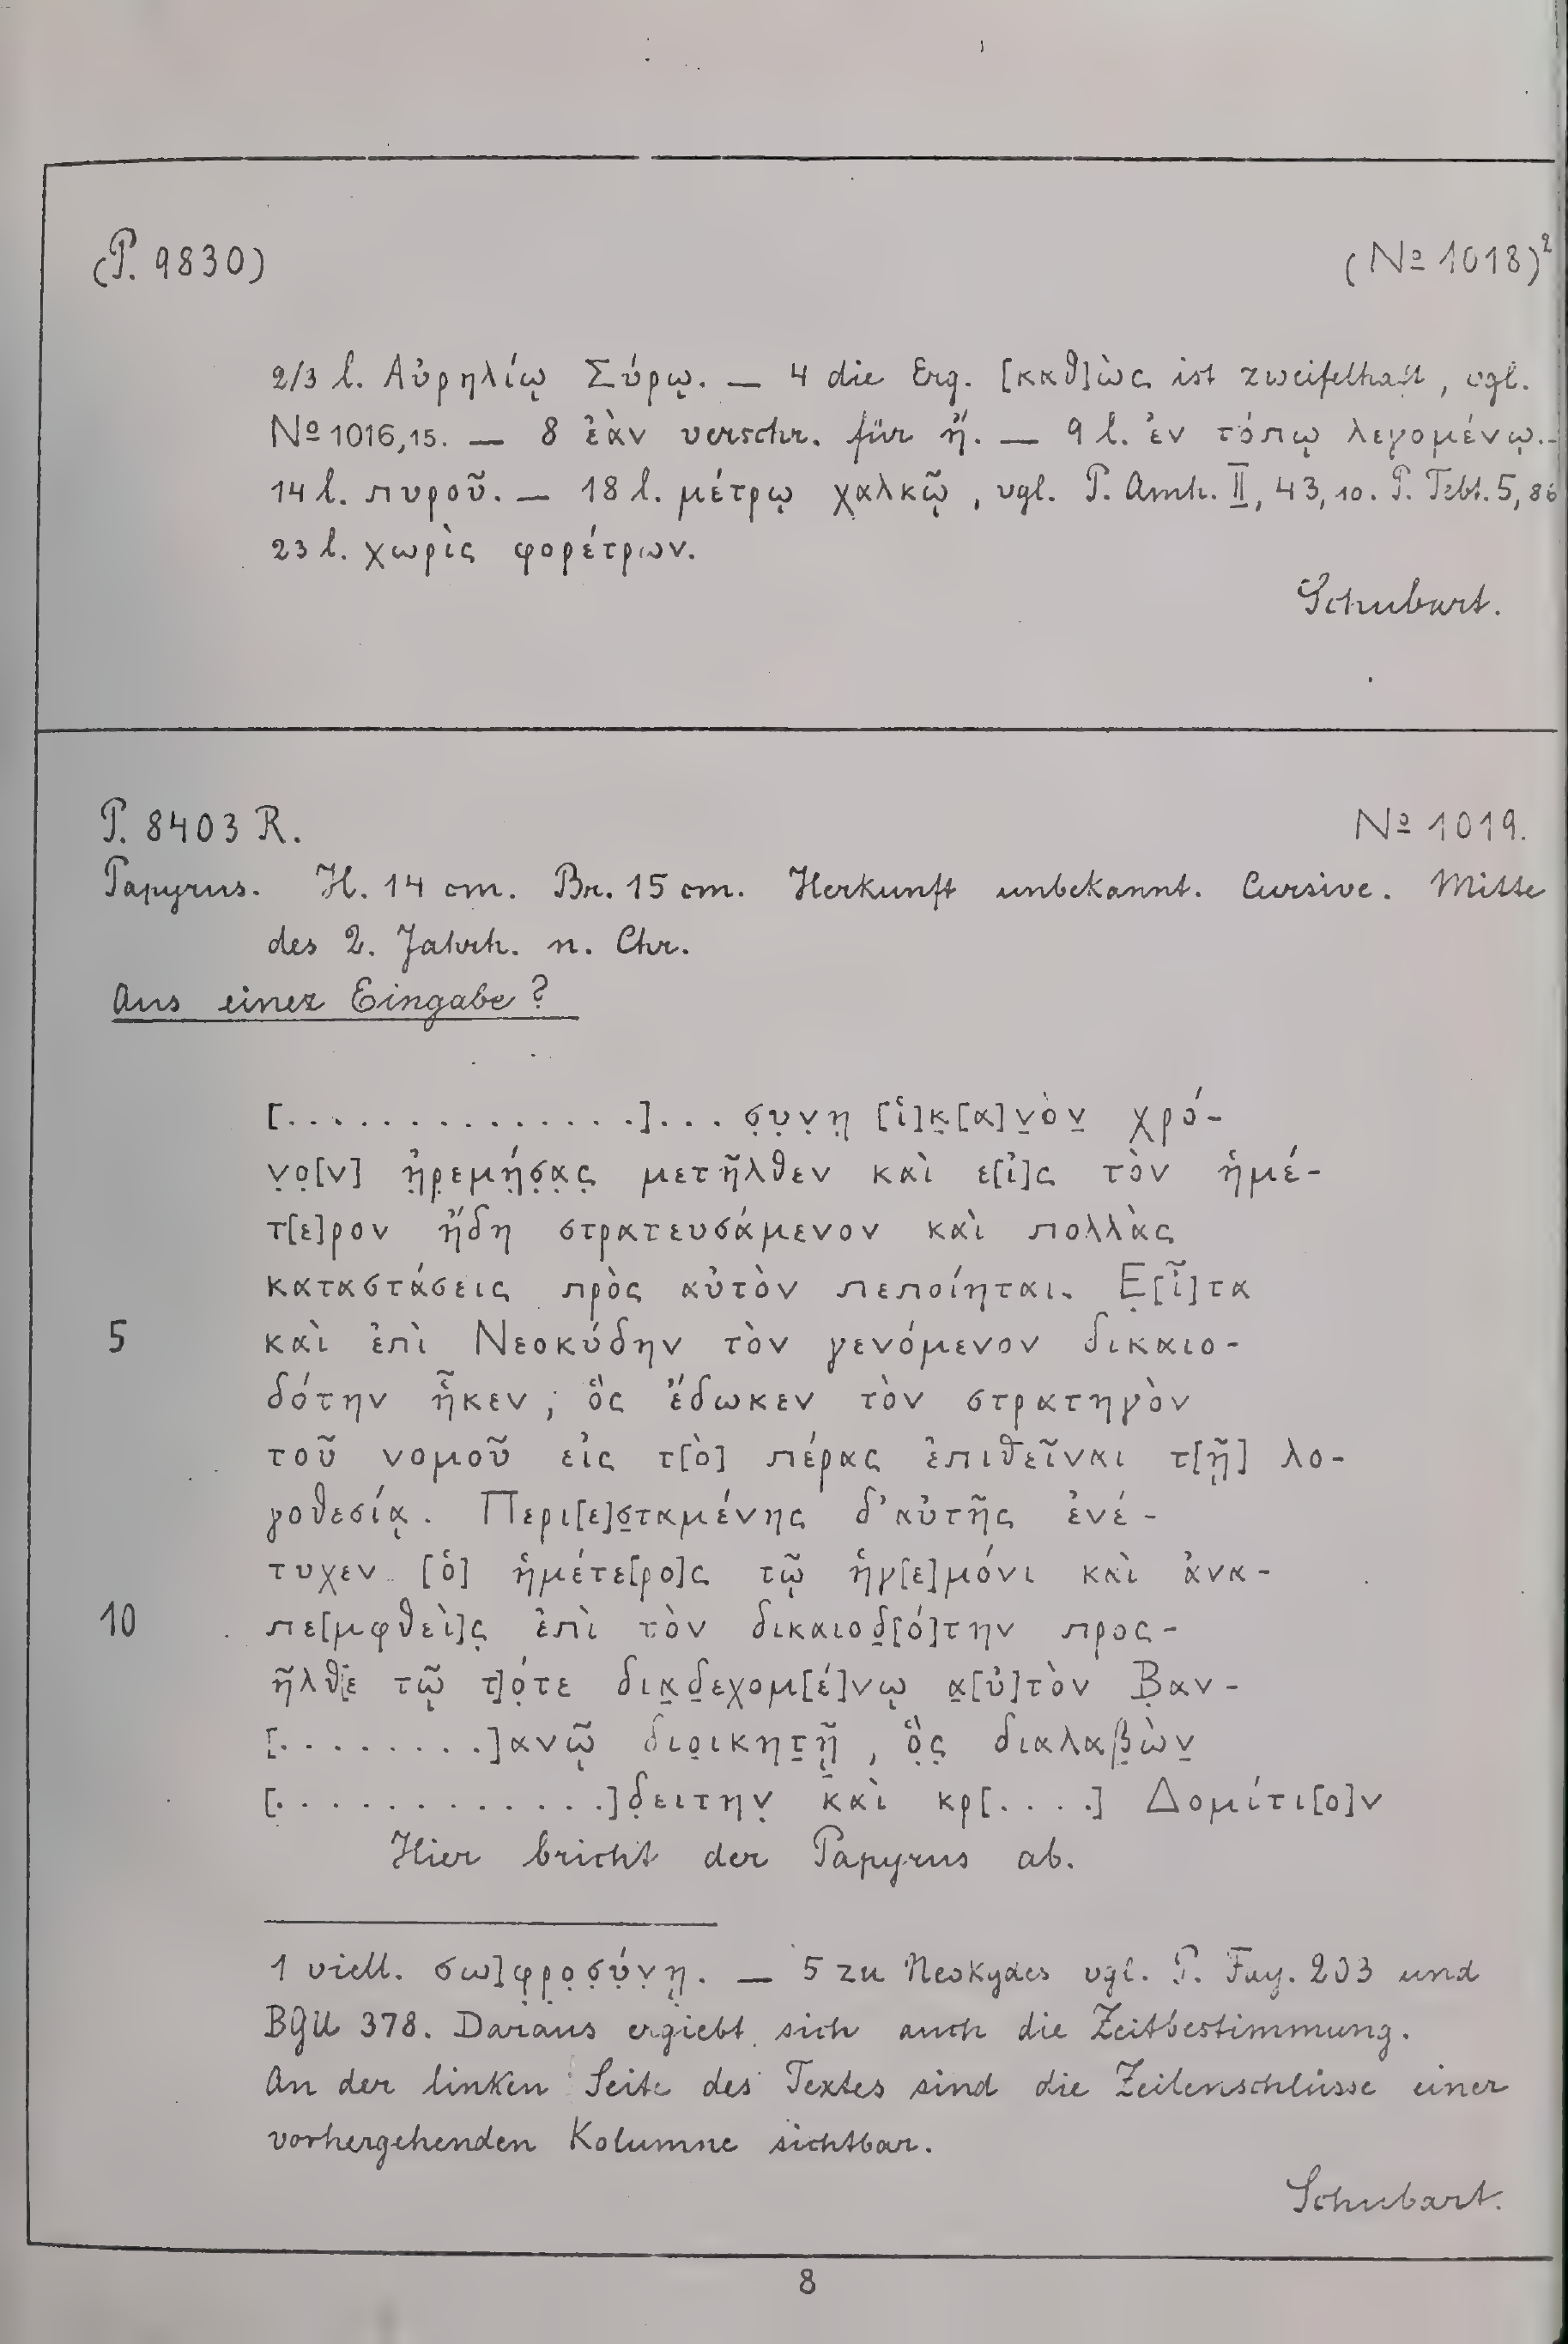 (P. 9830) (№ 1018)²
2/3 l. Αὐρηλίῳ Σύρῳ. — 4 die Erg. [καθ]ὼς ist zweifelhaft, vgl.
№ 1016,15. — 8 ἐὰν verschr. für ἤ. — 9 l. ἐν τόπῳ λεγομένῳ. –
14 l. πυροῦ. — 18 l. μέτρῳ χαλκῷ, vgl. P. Amh. II, 43,10. P. Tebt. 5, 86
23 l. χωρὶς φορέτρων.
Schubart.
P. 8403 R. № 1019.
Papyrus. H. 14 cm. Br. 15 cm. Herkunft unbekannt. Cursive. Mitte
des 2. Jahrh. n. Chr.
Aus einer Eingabe?
[. . . . . . . . . . . . . . .]. . . σ̣υ̣ν̣η̣ [ἱ]κ̣[α]ν̣ὸν̣ χρό-
ν̣ο̣[ν] ἠ̣ρ̣εμή̣σ̣α̣ς̣ μετῆλθεν καὶ ε[ἰ]ς τὸν ἡμέ-
τ[ε]ρον ἤδη στρατευσάμενον καὶ πολλὰς
καταστάσεις πρὸς αὐτὸν πεποίηται. Ε̣[ἶ]τα
5 καὶ ἐπὶ Νεοκύδην τὸν γενόμενον δικαιο-
δότην ἧκεν, ὃς ἔδωκεν τὸν στρατηγὸν
τοῦ νομοῦ εἰς τ[ὸ] πέρας ἐπιθεῖναι τ[ῇ] λο-
γοθεσίᾳ. Περι[ε]σ̣ταμένης δ’αὐτῆς ἐνέ-
τυχεν [ὁ] ἡμέτε[ρο]ς τῷ ἡγ[ε]μόνι καὶ ἀνα-
10 πε[μφθεὶ]ς̣ ἐπὶ τὸν δικαιοδ̣[ό]την προς-
ῆλθ[ε τῷ τ]ό̣τε δια̣δ̣εχομ[έ]νῳ α̣[ὐ]τὸν Β̣αν-
[. . . . . . . . .]ανῷ διο̣ικητ̣ῇ̣, ὃ̣ς̣ διαλαβ̣ὼν̣
[. . . . . . . . . . . . . .]δ̣ειτην̣ καὶ κρ[. . . .] Δομίτι[ο]ν
Hier bricht der Papyrus ab.
1 viell. σω]φ̣ρ̣ο̣σ̣ύ̣ν̣ῃ̣. — 5 zu Neokydes vgl. P. Fay. 203 und
BGU 378. Daraus ergiebt sich auch die Zeitbestimmung.
An der linken Seite des Textes sind die Zeilenschlüsse einer
vorhergehenden Kolumne sichtbar.
Schubart.
8